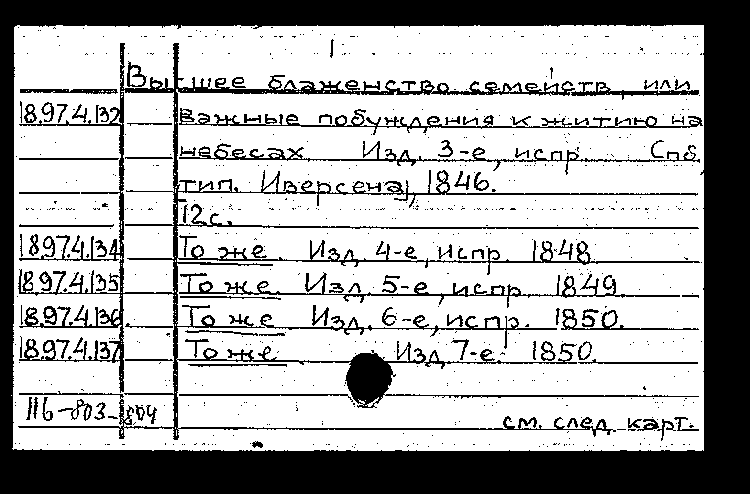 Высшее блаженство семейств, или
18.97.4.132 важные побуждения к житию на
небесах Изд. 3-е, испр. Спб,
тип. Иверсена, 1846.
12 с.
18.97.4.134 То же. Изд. 4-е, испр. 1848.
18.97.4.135 То же. Изд. 5-е, испр. 1849.
18.97.4.136. То же Изд. 6-е, испр. 1850.
18.97.4.137 То же Изд. 7-е. 1850.
116-803-804
см. след. карт.